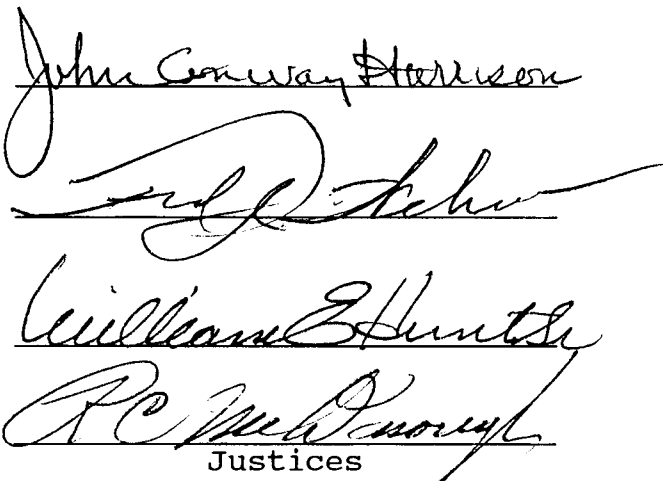 John Conway Harrison
Fred J. Weber
William E Hunt Sr
R C McDonough
Justices